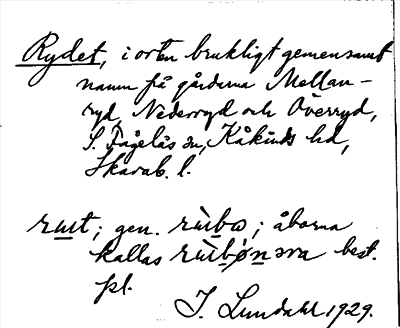 Rydet, i orten brukligt gemensamt
namn på gårdarna Mellan-
ryd, Nederryd och Överryd,
S. Fågelås sn, Kåkinds hd,
Skarab. l.
gen. ; åborna
kallas best.
pl.
J. Lundahl 1929.